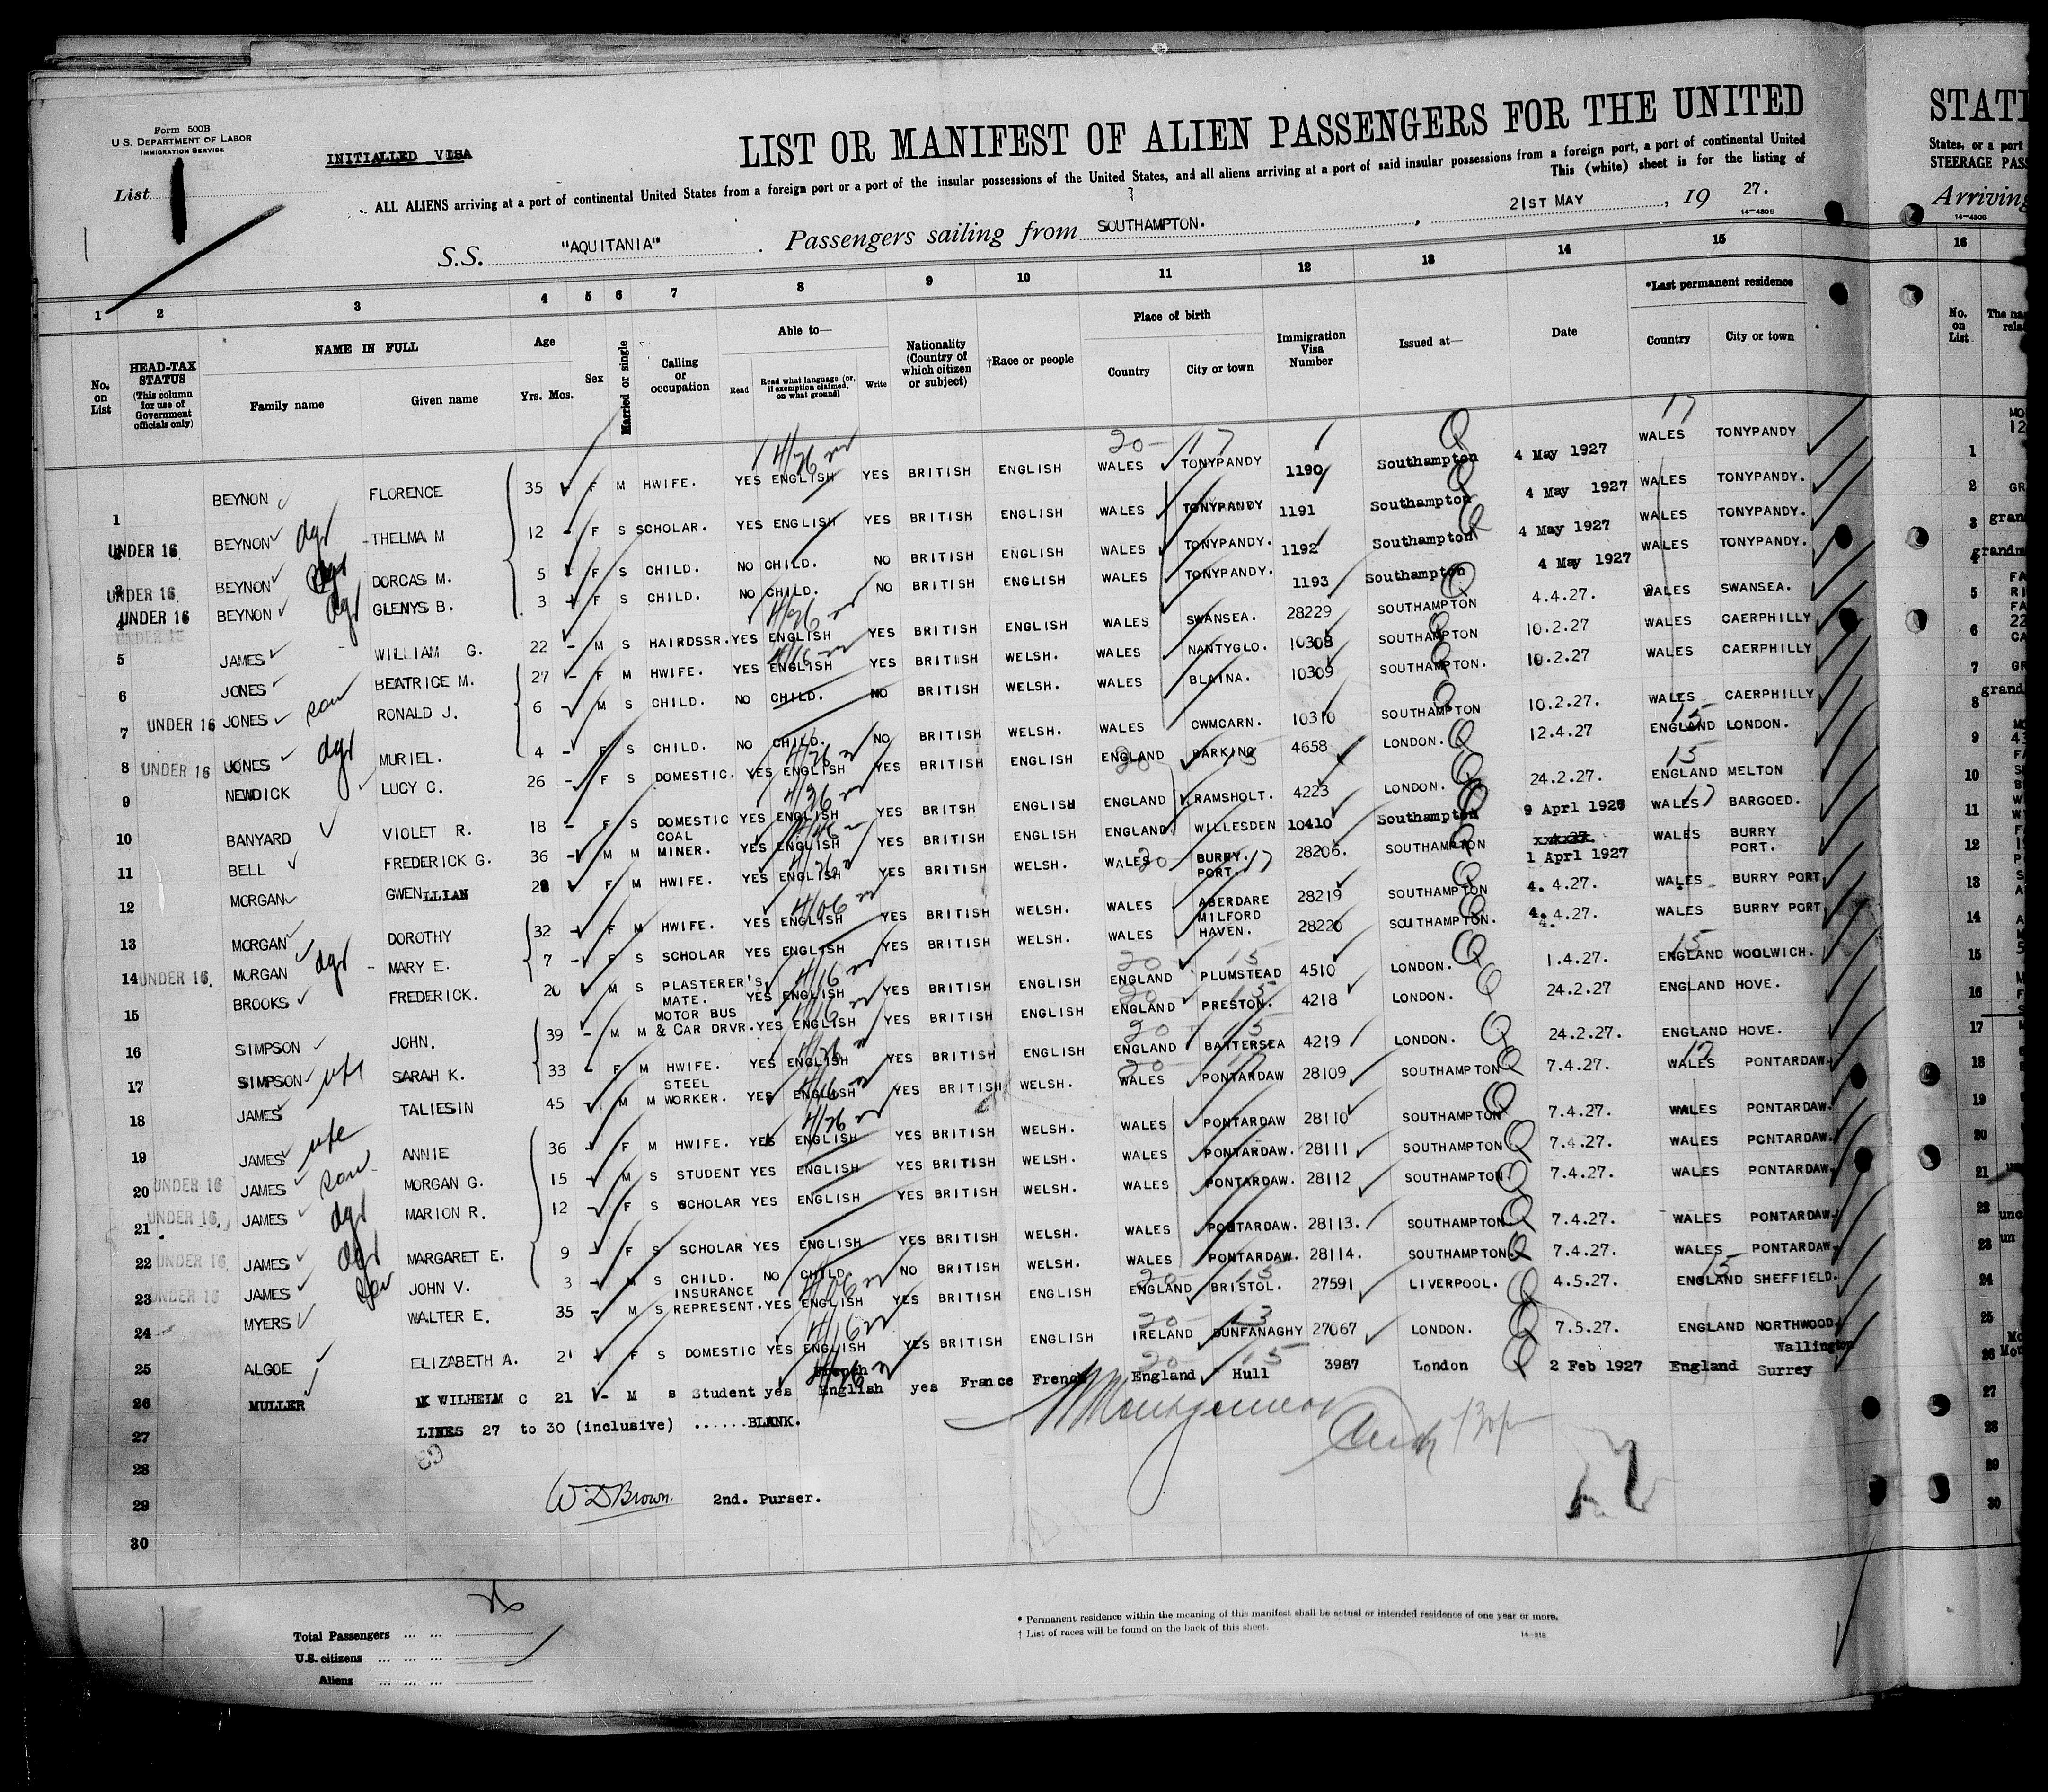 Form 500B
U. S. DEPARTMENT OF LABOR
IMMIGRATION SERVICE
List 1
INITIALLED VISA
LIST OR MANIFEST OF ALIEN PASSENGERS FOR THE UNITED
ALL ALIENS arriving at a port of continental United States from a foreign port or a port of the insular possessions of the United States, and all aliens arriving at a port of said insular possessions from a foreign port, a port of continental United
This (white) sheet is for the listing of
S.S. "AQUITANIA" . Passengers sailing from SOUTHAMPTON. , 21ST MAY , 19 27.
14-480B
1 2 3 4 5 6 7 8 9 10 11 12 13 14 15
No. on List
HEAD-TAX STATUS (This column for use of Government officials only)
NAME IN FULL
Family name Given name
Age
Yrs. Mos.
Sex
Married or single
Calling or occupation
Able to—
Read Read what language (or, if exemption claimed, on what ground) Write
Nationality (Country of which citizen or subject)
†Race or people
Place of birth
Country City or town
Immigration Visa Number
Issued at—
Date
*Last permanent residence
Country City or town
1 BEYNON FLORENCE 35 - F M HWIFE. YES ENGLISH YES BRITISH ENGLISH WALES TONYPANDY 1190 Southampton 4 May 1927 WALES TONYPANDY
2 UNDER 16. BEYNON dgr THELMA M 12 - F S SCHOLAR. YES ENGLISH YES BRITISH ENGLISH WALES TONYPANDY 1191 Southampton 4 May 1927 WALES TONYPANDY.
3 UNDER 16. BEYNON dgr DORCAS M. 5 F S CHILD. NO CHILD. NO BRITISH ENGLISH WALES TONYPANDY. 1192 Southampton 4 May 1927 WALES TONYPANDY.
4 UNDER 16 BEYNON dgr GLENYS B. 3 - F S CHILD. NO CHILD. NO BRITISH ENGLISH WALES TONYPANDY. 1193 Southampton 4 May 1927 WALES TONYPANDY.
5 JAMES WILLIAM G. 22 - M S HAIRDSSR. YES ENGLISH YES BRITISH ENGLISH WALES SWANSEA. 28229 SOUTHAMPTON 4.4.27. WALES SWANSEA.
6 JONES BEATRICE M. 27 - F M HWIFE. YES ENGLISH YES BRITISH WELSH. WALES NANTYGLO. 10308 SOUTHAMPTON 10.2.27 WALES CAERPHILLY
7 UNDER 16 JONES son RONALD J. 6 - M S CHILD. NO CHILD. NO BRITISH WELSH. WALES BLAINA. 10309 SOUTHAMPTON. 10.2.27 WALES CAERPHILLY
8 UNDER 16 JONES dgr MURIEL. 4 - F S CHILD. NO CHILD. NO BRITISH WELSH. WALES CWMCARN. 10310 SOUTHAMPTON 10.2.27. WALES CAERPHILLY
9 NEWDICK LUCY C. 26 - F S DOMESTIC. YES ENGLISH YES BRITISH ENGLISH ENGLAND BARKING 4658 LONDON. 12.4.27 ENGLAND LONDON.
10 BANYARD VIOLET R. 18 - F S DOMESTIC YES ENGLISH YES BRITSH ENGLISH ENGLAND RAMSHOLT. 4223 LONDON. 24.2.27. ENGLAND MELTON
11 BELL FREDERICK G. 36 - M M COAL MINER. YES ENGLISH YES BRITISH ENGLISH ENGLAND WILLESDEN 10410 Southampton 9 Aprl WALES BARGOED.
12 MORGAN GWENLLIAN F M HWIFE. YES ENGLISH YES BRITISH WELSH. WALES BURRY. PORT. 28206. SOUTHAMPTON 1 Aprl 1927 WALES BURRY PORT.
13 MORGAN DOROTHY 32 - F M HWIFE. YES ENGLISH YES BRITISH WELSH. WALES ABERDARE 28219 SOUTHAMPTON 4. 4.27. WALES BURRY PORT.
14 UNDER 16. MORGAN dgr - MARY E. 7 - F S SCHOLAR YES ENGLISH YES BRITISH WELSH. WALES MILFORD HAVEN. 28220 SOUTHAMPTON. 4. 4.27. WALES BURRY PORT
15 BROOKS FREDERICK. 20 M S PLASTERER'S MATE. YES ENGLISH YES BRITISH ENGLISH ENGLAND PLUMSTEAD 4510 LONDON. 1.4.27. ENGLAND WOOLWICH.
16 SIMPSON JOHN. 39 - M M MOTOR BUS & CAR DRVR. YES ENGLISH YES BRITISH ENGLISH ENGLAND PRESTON. 4218 LONDON. 24.2.27 ENGLAND HOVE.
17 SIMPSON wfe SARAH K. 33 - F M HWIFE. YES ENGLISH YES BRITISH ENGLISH ENGLAND BATTERSEA 4219 LONDON. 24.2.27 ENGLAND HOVE.
18 JAMES TALIESIN 45 - M M STEEL WORKER. YES ENGLISH YES BRITISH WELSH. WALES PONTARDAW 28109 SOUTHAMPTON 7.4.27. WALES PONTARDAW.
19 JAMES wfe ANNIE 36 - F M HWIFE. YES ENGLISH YES BRITISH WELSH. WALES PONTARDAW 28110 SOUTHAMPTON 7.4.27. WALES PONTARDAW.
20 UNDER 16 JAMES son MORGAN G. 15 - M S STUDENT YES ENGLISH YES BRITISH WELSH. WALES PONTARDAW. 28111 SOUTHAMPTON 7.4.27. WALES PONTARDAW.
21 UNDER 16. JAMES dgr MARION R. 12 - F S SCHOLAR YES ENGLISH YES BRITISH WELSH. WALES PONTARDAW. 28112 SOUTHAMPTON 7.4.27. WALES PONTARDAW.
22 UNDER 16. JAMES dgr MARGARET E. 9 - F S SCHOLAR YES ENGLISH YES BRITISH WELSH. WALES PONTARDAW. 28113. SOUTHAMPTON 7.4.27. WALES PONTARDAW.
23 UNDER 16 JAMES son JOHN V. 3 - M S CHILD. NO CHILD. NO BRITISH WELSH. WALES PONTARDAW. 28114. SOUTHAMPTON. 7.4.27. WALES PONTARDAW.
24 MYERS WALTER E. 35 - M S INSURANCE REPRESENT. YES ENGLISH YES BRITISH ENGLISH ENGLAND BRISTOL. 27591 LIVERPOOL. 4.5.27. ENGLAND SHEFFIELD.
25 ALGOE ELIZABETH A. 21 - F S DOMESTIC YES ENGLISH YES BRITISH ENGLISH IRELAND DUNFANAGHY 27067 LONDON. 7.5.27. ENGLAND NORTHWOOD.
26 MULLER WILHELM C 21 - M s Student yes French English yes France French England Hull 3987 London 2 Feb 1927 England Wallington Surrey
27 LINES 27 to 30 (inclusive) ......BLANK.
28
29 W D Brown. 2nd. Purser.
30
Total Passengers ... ...
U.S. citizens ... ... ...
Aliens ... ... ...
* Permanent residence within the meaning of this manifest shall be actual or intended residence of one year or more.
† List of races will be found on the back of this sheet.
STATE
States, or a port
STEERAGE PAS
Arriving
14-480B
16
No. on List
1
2 GR
3 grand
4 grandm
5
6
7 GR
8 grand
9
10
11
12
13
14
15
16
17
18
19
20
21
22
23
24
25
26
27
28
29
30